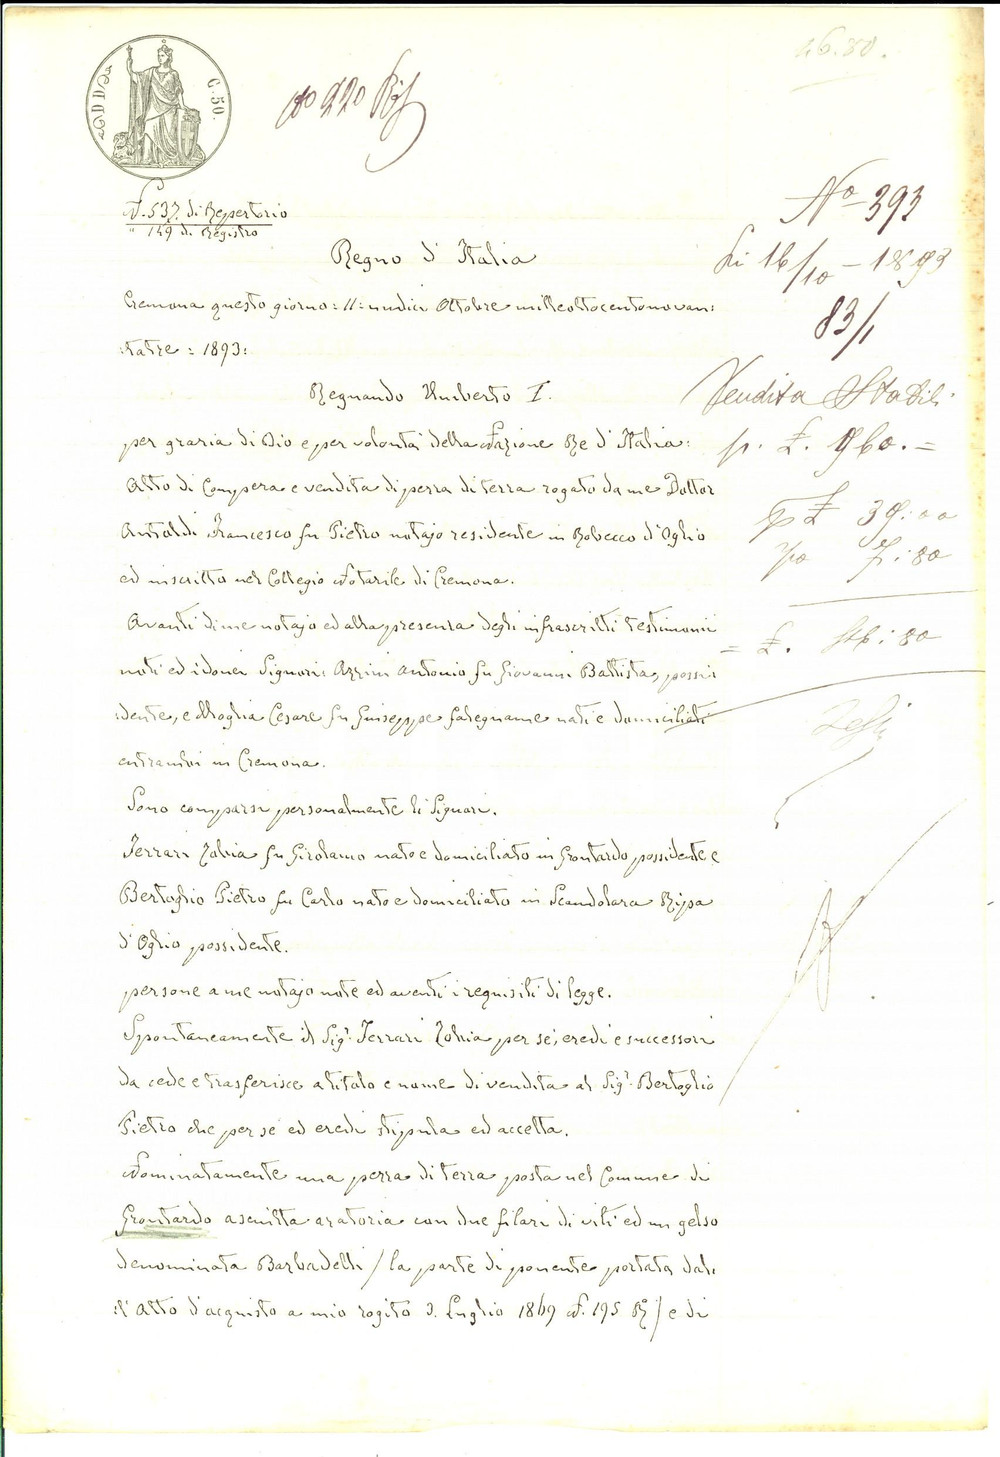 C. 50.
46.80.
N. 537. di Repertorio
" 149 di Registro
Nº 393
Li 16/10 - 1893
83/1
Vendita Stabili
p. £. 960. =
£ 39:00
7:80
= £. 46:80
Regno d'Italia
Cremona questo giorno: 11: undici Ottobre milleottocentonovan:
:tatre: 1893:
Regnando Umberto I.
per grazia di Dio e per volontà della Nazione Re d'Italia:
Atto di Compera e vendita di pezza di terra rogato da me Dottor
Antoldi Francesco fu Pietro notajo residente in Robecco d'Oglio
ed inscritto nel Collegio Notarile di Cremona.
Avanti di me notajo ed alla presenza degli infrascritti testimonii
noti ed idonei Signori: Azzini Antonio fu Giovanni Battista, possi:
:dente, e Moglia Cesare fu Guiseppe falegname nati e domiciliati
entrambi in Cremona.
Sono comparsi personalmente li Signori.
Ferrari Zobia fu Girolamo nato e domiciliato in Grontardo possidente e
Bertoglio Pietro fu Carlo nato e domiciliato in Scandolara Ripa
d'Oglio possidente.
persone a me notajo note ed aventi i requisiti di legge.
Spontaneamente il Sigr. Ferrari Zobia per sé, eredi e successori
da cede e trasferisce a titolo e nome di vendita al Sigr. Bertoglio
Pietro che per sé ed eredi stipula ed accetta.
Nominatamente una pezza di terra posta nel Comune di
Grontardo asciutta aratoria con due filari di viti ed un gelso
denominata Barbadelli / la parte di ponente portata dal:
:l'Atto d'acquisto a mio rogito 3. Luglio 1869 N. 195 R / e di